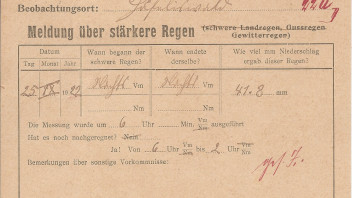 Beobachtungsort:
Meldung über stärkere Regen (schwere Landregen, Gussregen,
Gewitterregen)
Datum Wann begann der Wann endete Wie viel mm Niederschlag
Tag Monat Jahr schwere Regen? derselbe? ergab dieser Regen?
Vm Vm
25 19 Nachts Nachts 41.8 mm
Nm Nm
Die Messung wurde um 6 Uhr Min. Vm Nm ausgeführt
Hat es noch nachgeregnet? Nein!
Ja! Von 6 Uhr Vm Nm bis 2 Uhr Vm Nm
Bemerkungen über sonstige Vorkommnisse: